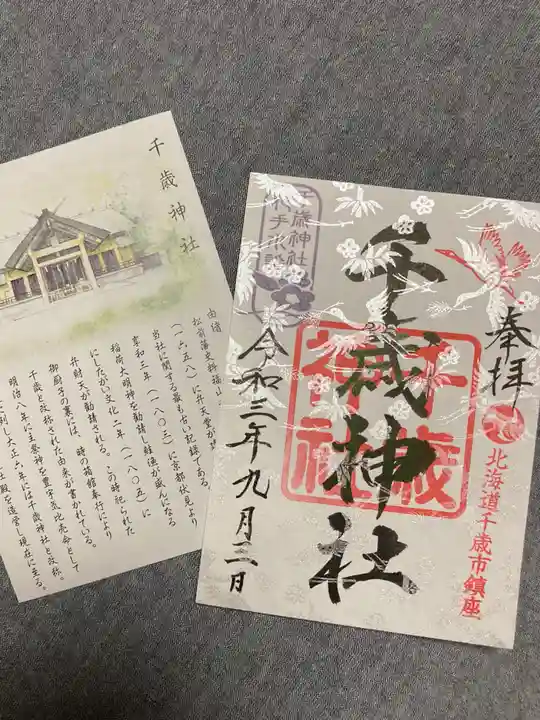 千歳神社
由緒
松前藩史料福山
(一六五八)に弁天堂が
当社に関する最も古い記録である。
享和三年(一八〇三)に京都伏見より
稲荷大明神を勧請し経過が盛んになる
にしたがい文化二年(一八〇五)に
弁財天が勧請される。この時祀られた
御厨子の裏には、時の箱館奉行により
千歳と改称された由来が書かれている。
明治八年に主祭神を豊宇気比売命として
大正六年には千歳神社と改称。
社殿を造営し現在に至る。
奉拝
北海道千歳市鎮座
千歳神社
千歳神社
千歳神社
令和三年九月三日